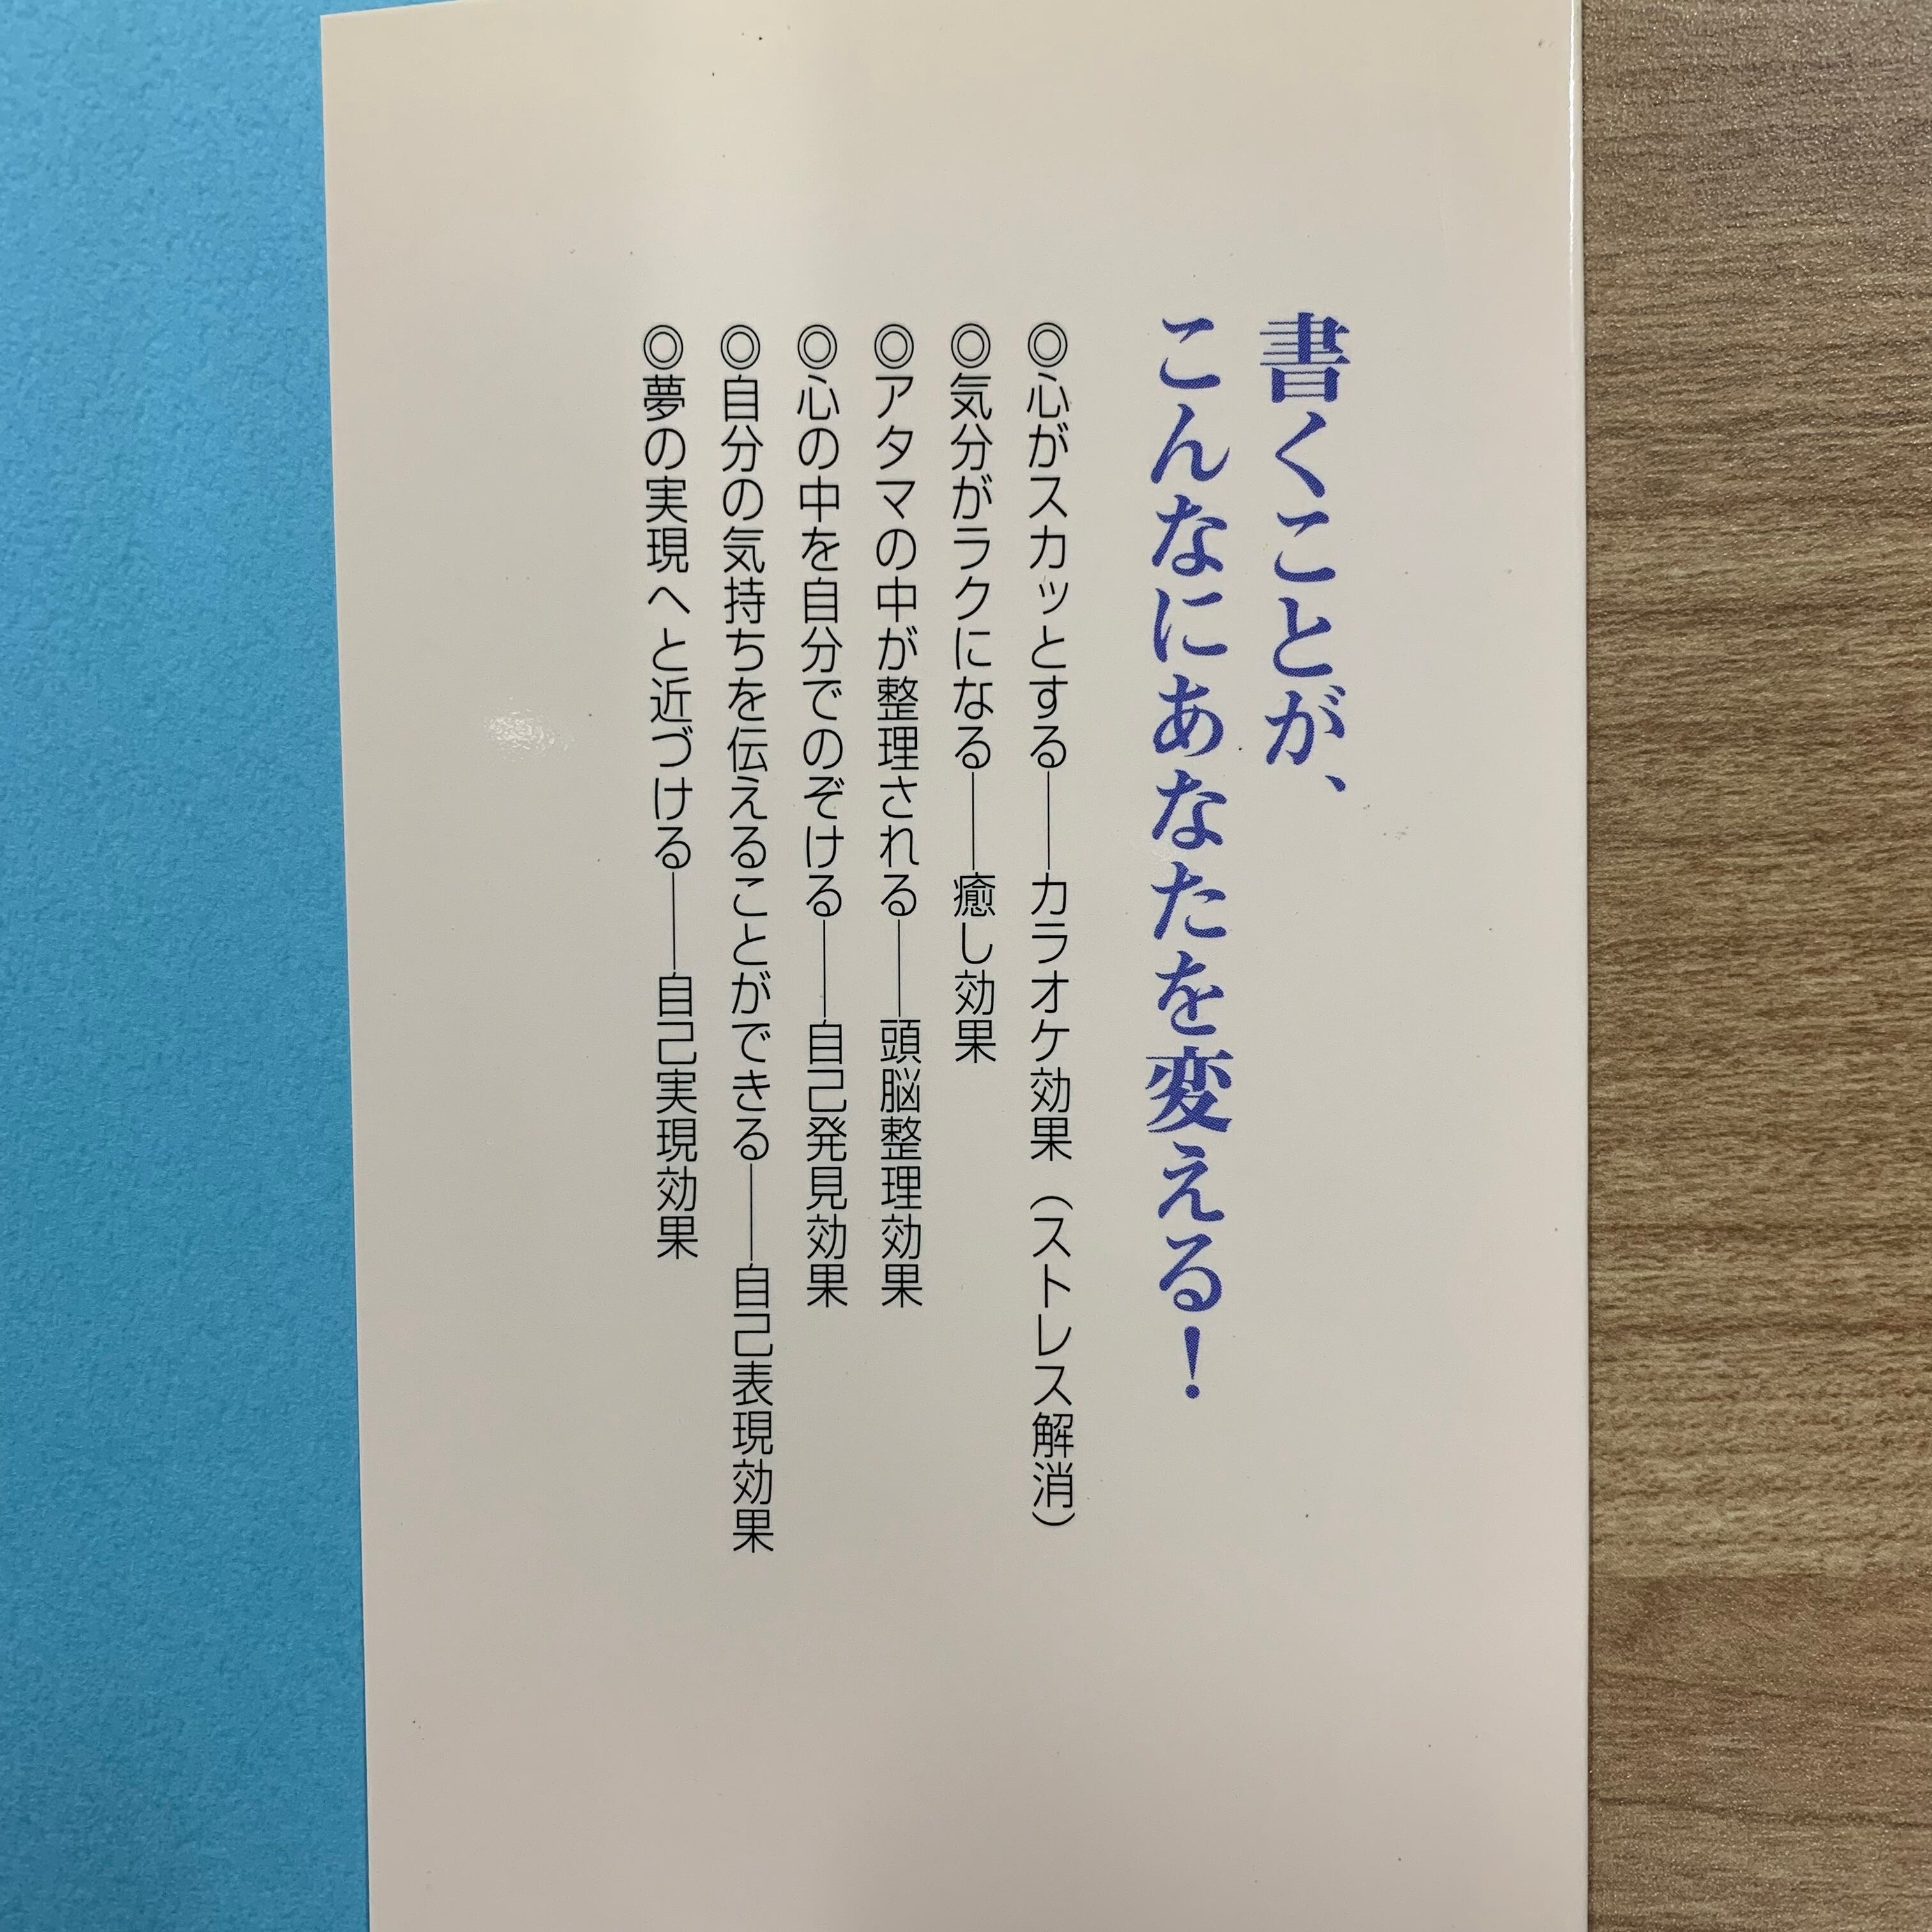 書くことが、
こんなにあなたを変える！
◎心がスカッとする――カラオケ効果（ストレス解消）
◎気分がラクになる――癒し効果
◎アタマの中が整理される――頭脳整理効果
◎心の中を自分でのぞける――自己発見効果
◎自分の気持ちを伝えることができる――自己表現効果
◎夢の実現へと近づける――自己実現効果